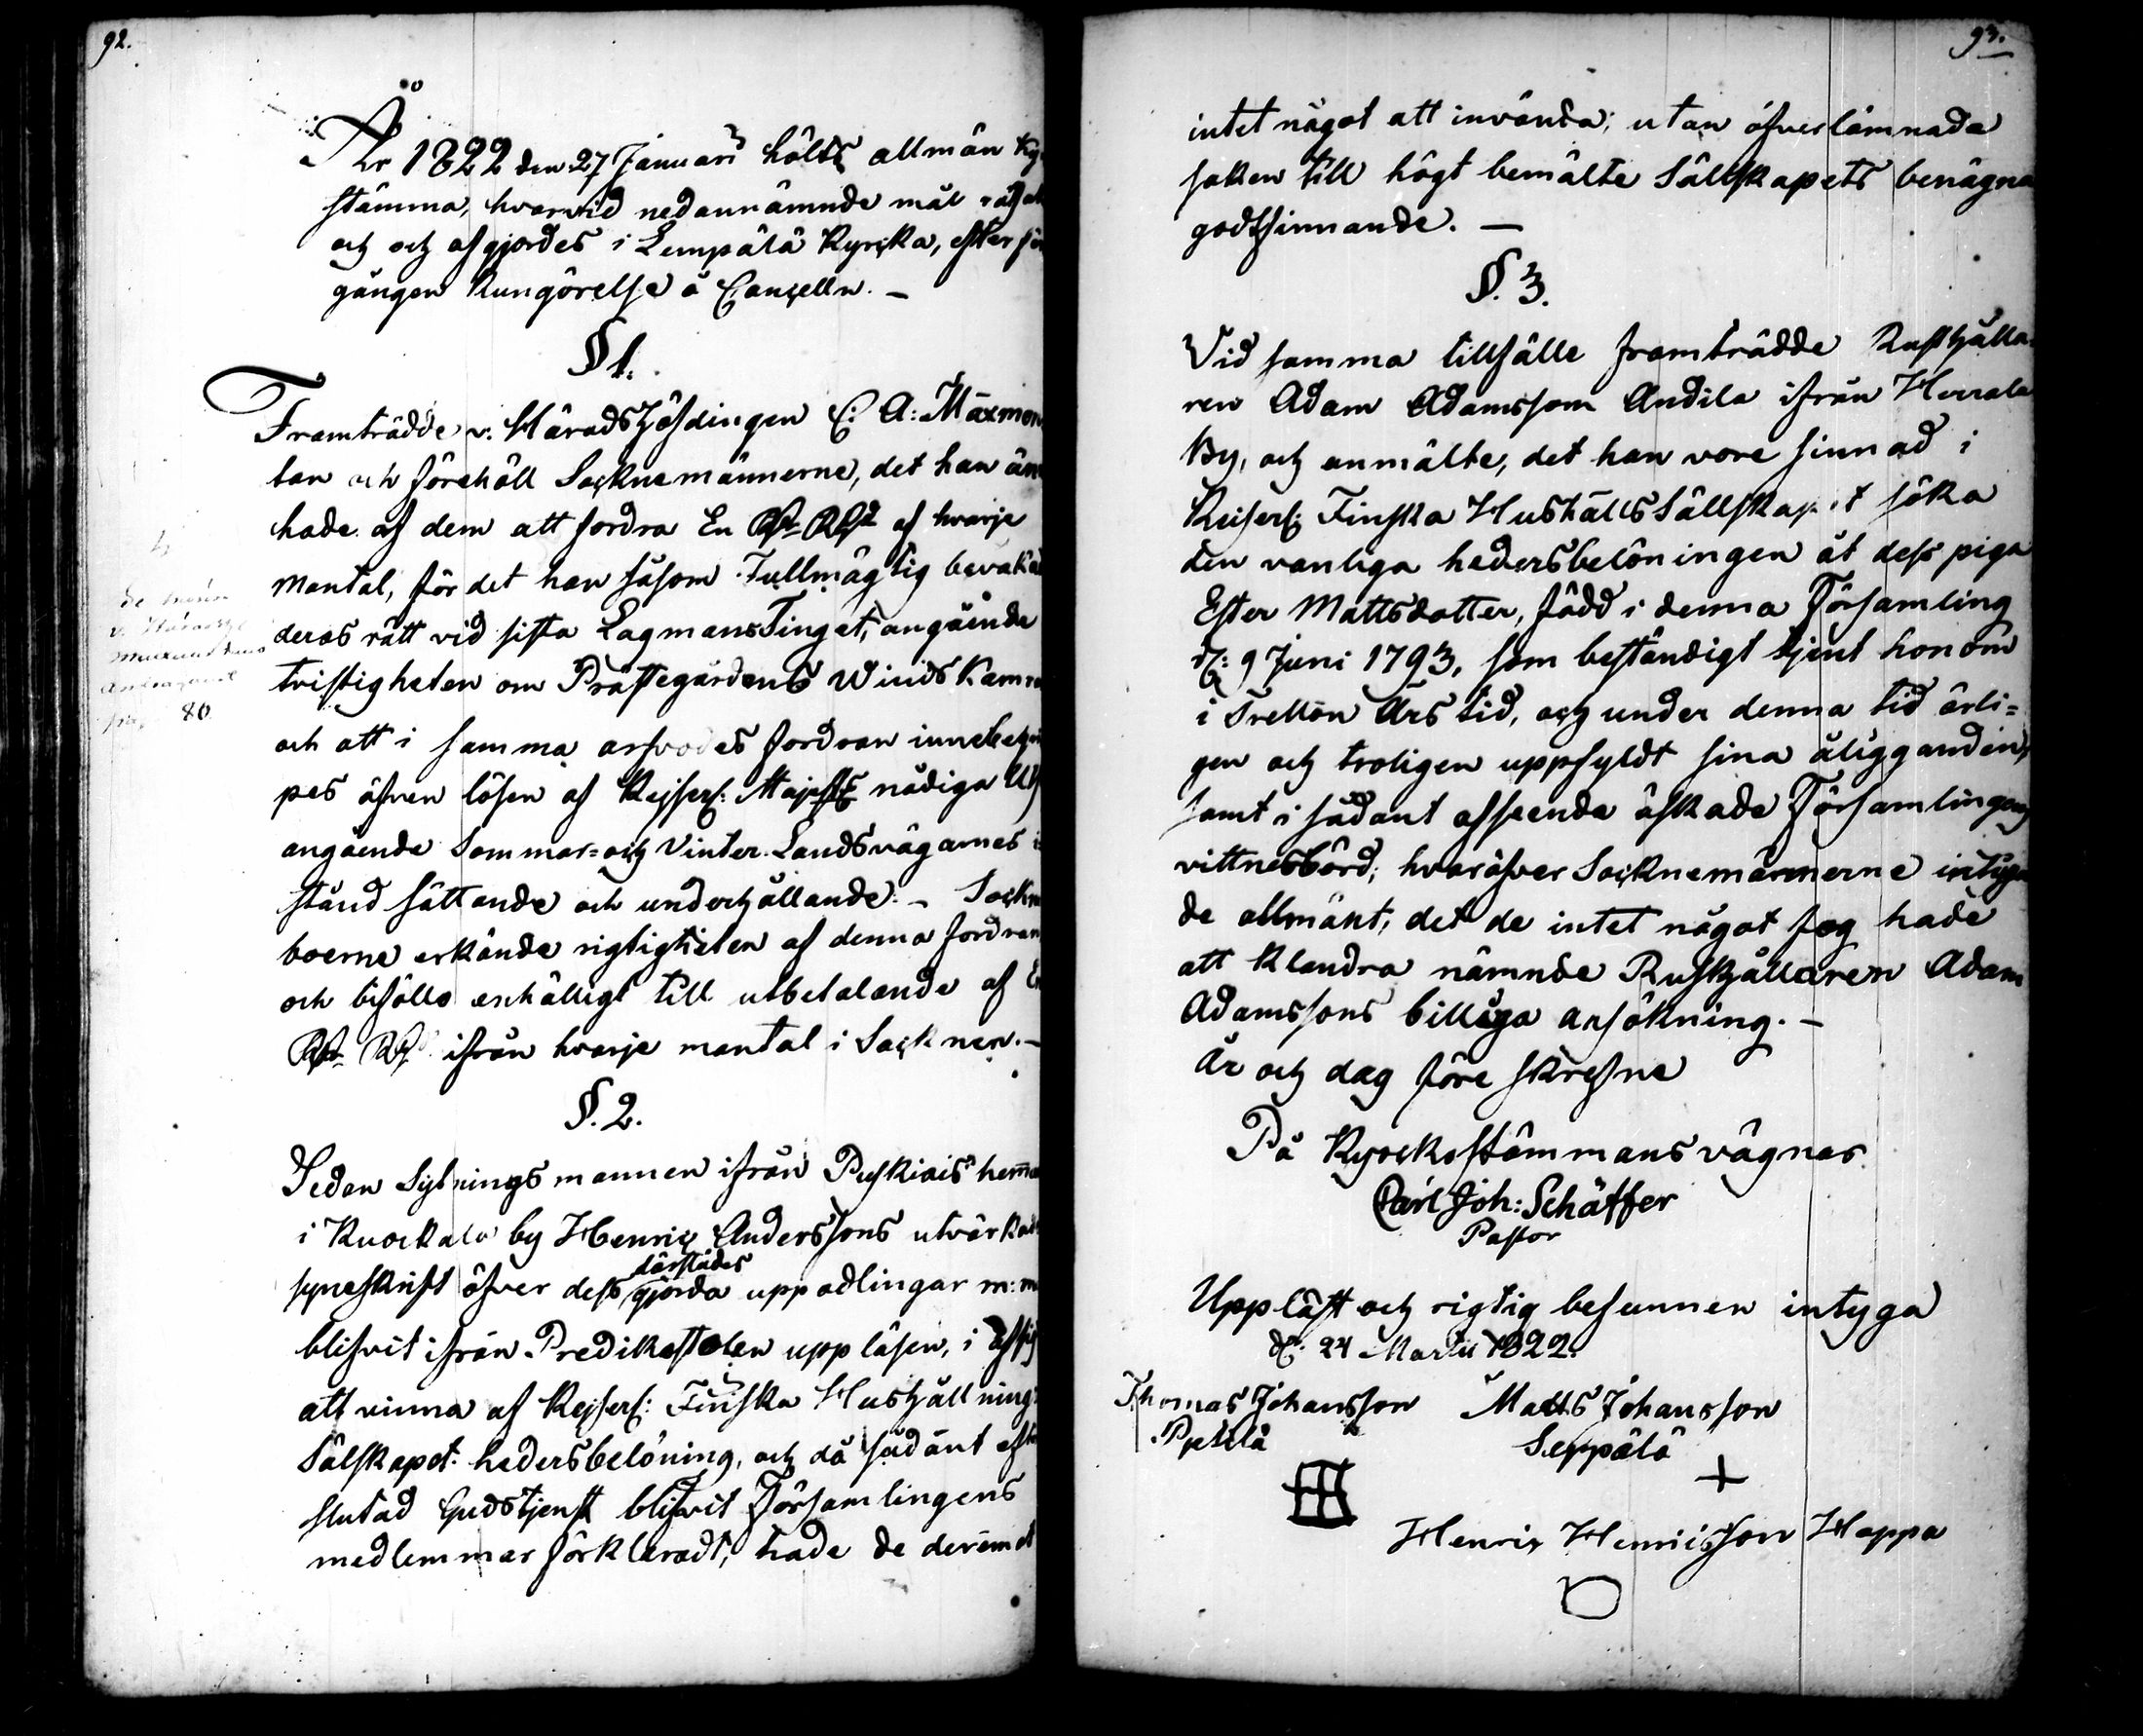 92.
År 1822 den 27 Januarii hölts allmän
stämma, hvarvid nedannämnde mål
och och afgjordes i Lempälä Kyrcka, efter
gången Kungörelse å Cancelln. –
§ 1.
Framträdde v. Häradshöfdingen C: A:
tan och förehöll Socknemännerne, det han
hade af dem att fordra En Rb. af hvarje
Mantal, för det han såsom Fullmägtig
deras rätt vid sista LagmansTinget, angående
tvistigheten om Prästegårdens Winds
och att i samma arfvodes fordran
pes äfven lösen af Kejserl: Maj:sts nådiga
angående Sommar= och Vinter Landsvägarnes
stånd sättande och underhållande. –
boerne erkände rigtigheten af denna fordran
och biföllo enhälligt till utbetalande af
ifrån hvarje mantal i Socknen. –
§. 2.
Sedan Sytningsmannen ifrån
i Kuockala by Henric Anderssons
därstädes
syneskrift öfver dess gjorda uppodlingar m:
blifvit ifrån Predikestolen uppläsen, i
att vinna af Kejserl: Finska
Sälskapet hedersbelöning, och då sådant
slutad Gudstjenst blifvit Församlingens
medlemmar förklaradt, hade de deremot
80
93.
intet något att invända; utan öfverlämnade
saken till högt bemälte Sällskapets benägna
godtfinnande. –
§. 3.
Vid samma tillfälle framträdde
ren Adam Adamsson Andila ifrån Herrala
By, och anmälte, det han vore sinnad i
Keiserl: Finska Hushålls Sällskapet söka
den vanliga hedersbelöningen åt dess piga
Ester Mattsdotter, född i denna Församling
d: 9 Juni 1793, som beständigt tjent honom
i Tretton Års tid, och under denna tid ärli=
gen och troligen uppfyldt sina åligganden,
samt i sådant afseende äskade Församlingens
vittnesbörd; hvaröfver Socknemännerne
de allmänt, det de intet något jag hade
att klandra nämnde Rusthållaren Adam
Adamssons billiga ansökning. –
År och dag före skrefne
På Kyrckostämmans vägnar
Carl Joh: Schäffer
Pastor
Uppläst och rigtig befunnen intyga
d: 24 Martii 1822.
Thomas Johansson Matts Johansson
Seppälä
Henric Henricsson Happa